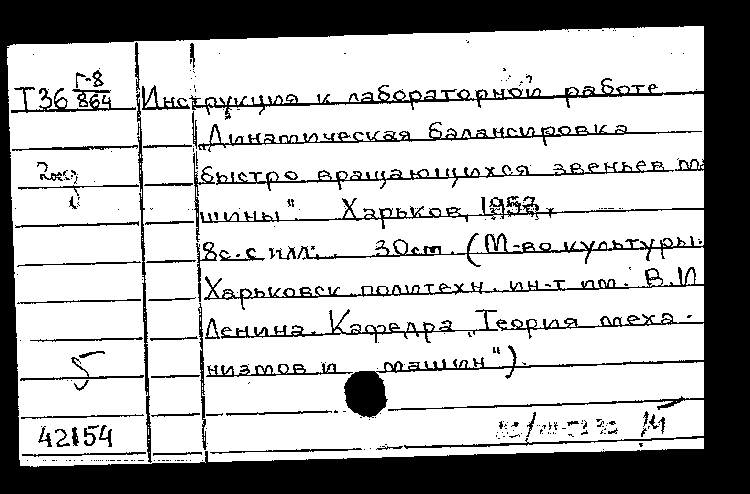 Т36 Г-8/864 Инструкция к лабораторной работе
"Динамическая балансировка
быстро вращающихся звеньев ма
шины". Харьков, 1953.
8с. с илл. 30см. (М-во культуры.
Харьковск. политехн. ин-т им. В.И
Ленина. Кафедра "Теория меха-
низмов и машин").
5
42154